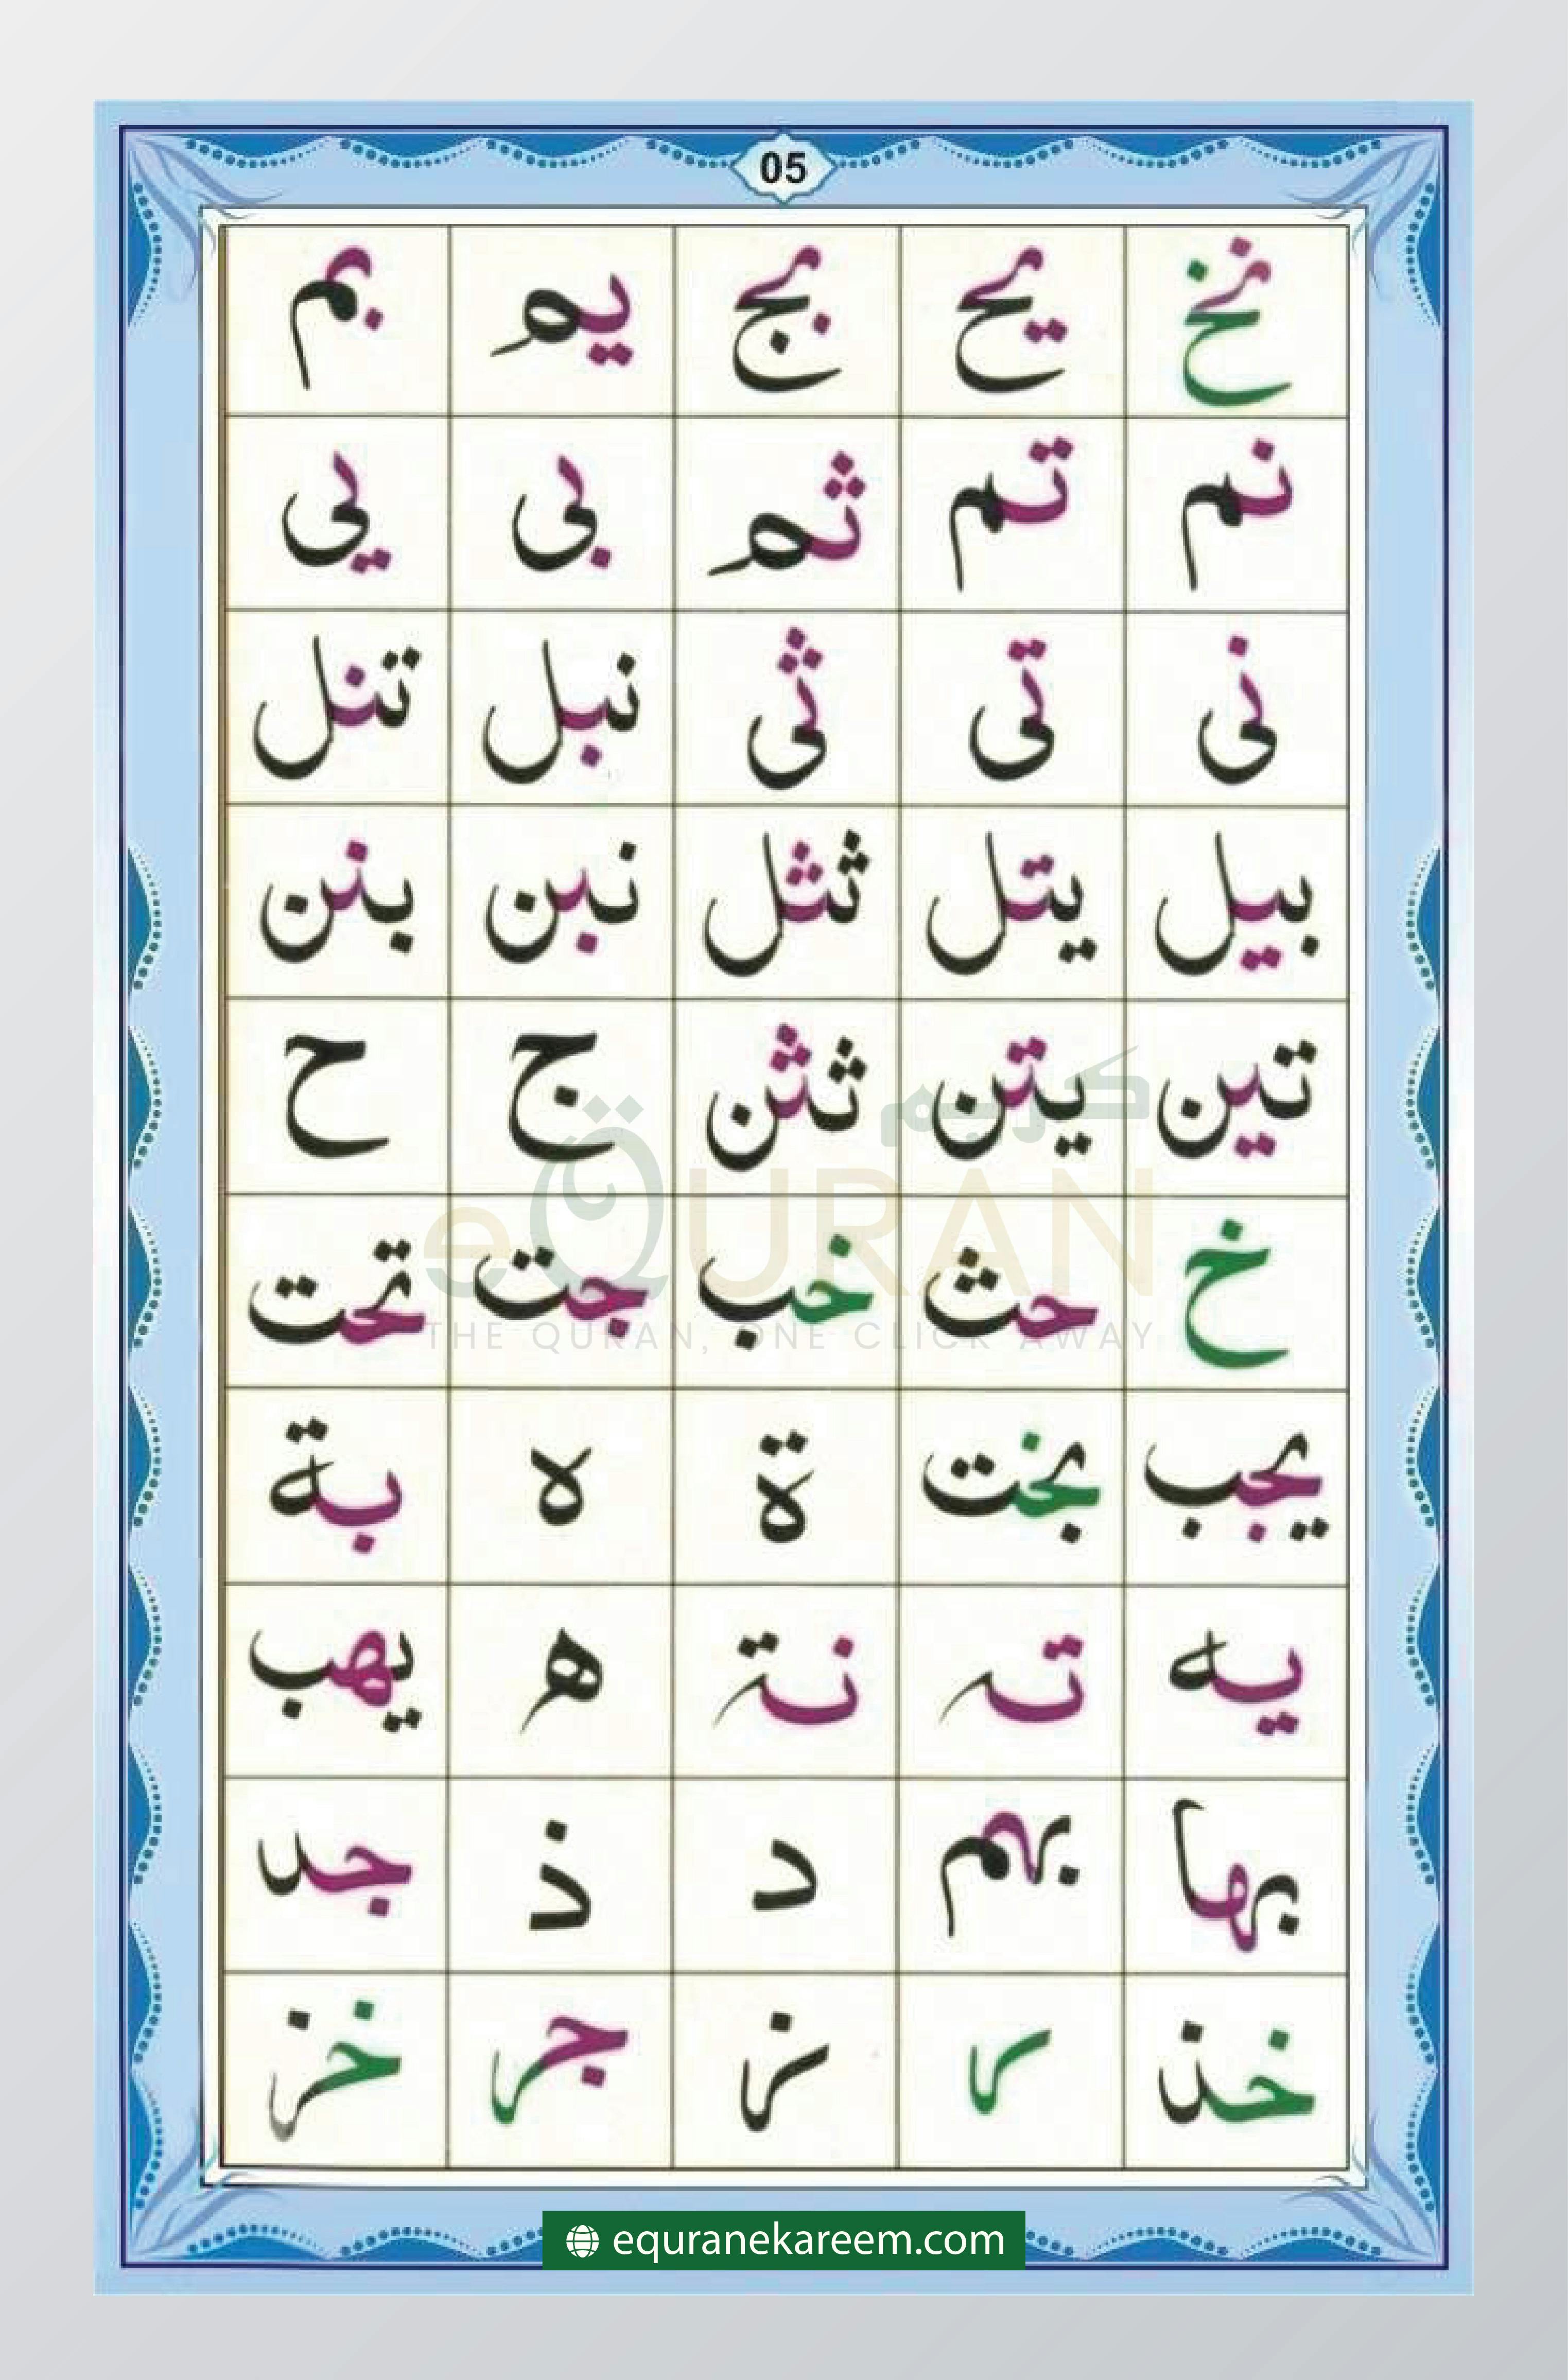 05
نخ يح بج يم بم
نم تم ثم بى يى
نى تى ثى نبل تنل
بيل يتل ثثل نبن بنن
تين يتن ثثن ج ح
خ حث خب جت تحت
يجب بخت ة ه بة
يه ته نة ه يهب
بها بهم د ذ جد
خذ ر ز جر خز
كريم
eQURAN
THE QURAN, ONE CLICK AWAY
equranekareem.com